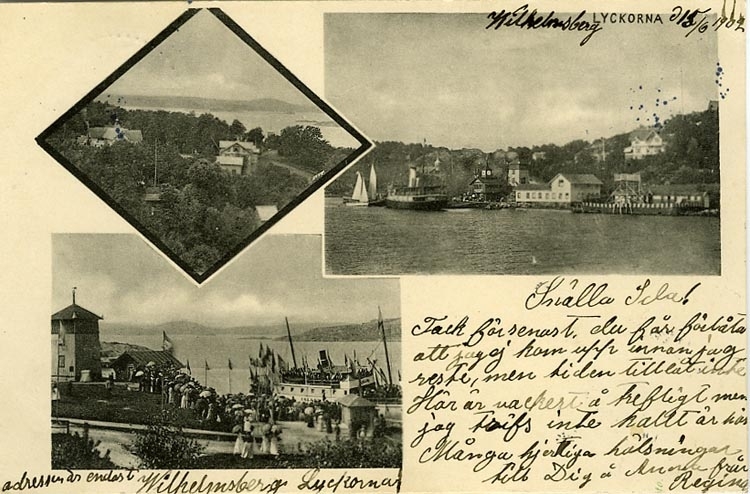 Wilhelmsberg LYCKORNA d 15/6 1902
Snälla Ida!
Tack försenast, du får förlåta
att jag ej kom upp innan jag
reste, men tiden tillät inte
Här är vackert å heftigt men
jag inte kallt är
Många hjertliga hälsningar
till Dig å Anna från
Regina
adressen är endast Wilhelmsberg Lyckorna